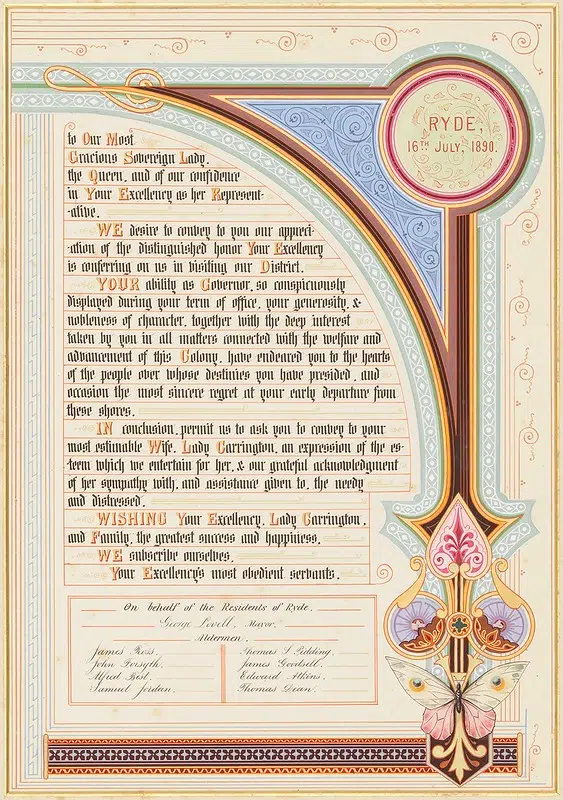 RYDE,
16TH JULY, 1890.
to Our Most
Gracious Sovereign Lady,
the Queen, and of our confidence
in Your Excellency as her Represent-
-ative.
WE desire to convey to you our appreci-
-ation of the distinguished honor Your Excellency
is conferring on us in visiting our District.
YOUR ability as Governor, so conspicuously
displayed during your term of office, your generosity, &
nobleness of character, together with the deep interest
taken by you in all matters connected with the welfare and
advancement of this Colony, have endeared you to the hearts
of the people over whose destinies you have presided, and
occasion the most sincere regret at your early departure from
these shores.
IN conclusion, permit us to ask you to convey to your
most estimable Wife, Lady Carrington, an expression of the es-
-teem which we entertain for her, & our grateful acknowledgment
of her sympathy with, and assistance given to, the needy
and distressed.
WISHING Your Excellency, Lady Carrington,
and Family, the greatest success and happiness,
WE subscribe ourselves,
Your Excellency's most obedient servants,
On behalf of the Residents of Ryde.
George Pevell, Mayor.
Aldermen.
James Ross.
John Forsyth.
Alfred Best.
Samuel Jordan.
Thomas S Pidding.
James Goodsell.
Edward Atkins.
Thomas Dean.